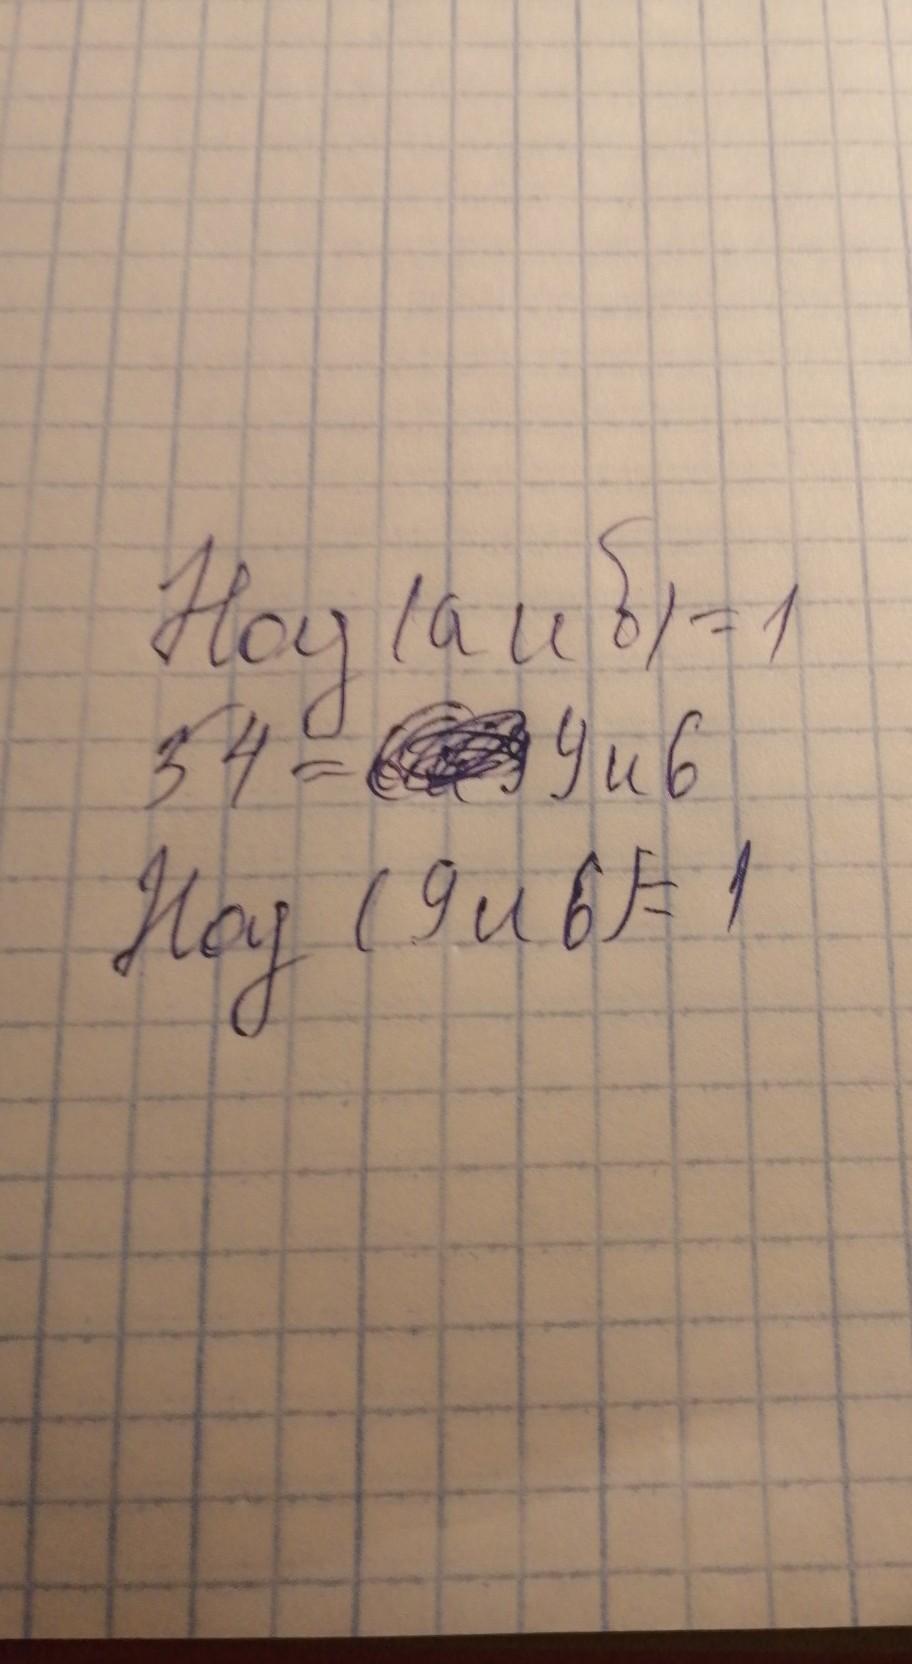 Нод (а и б) = 1
54 = 9 и 6
Нод (9 и 6) = 1